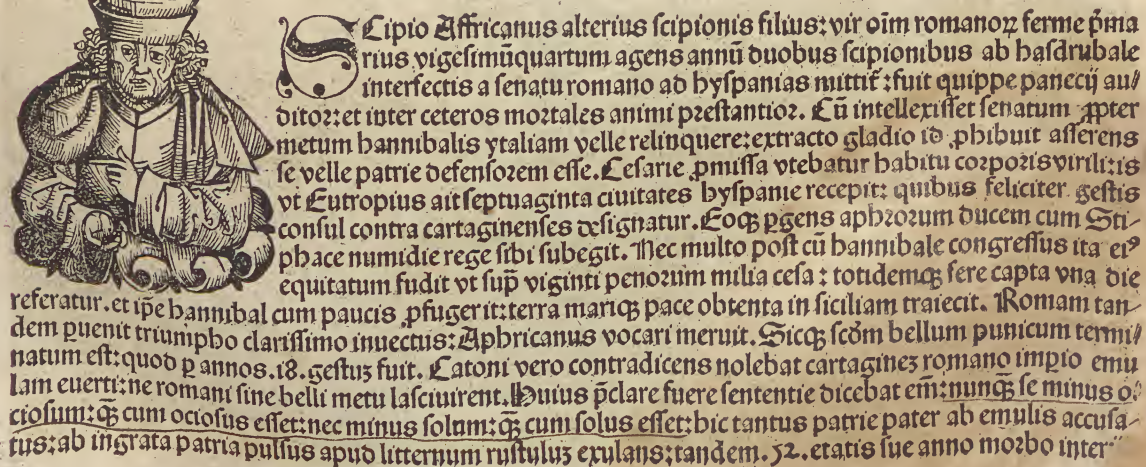 SCipio Affricanus alterius scipionis filius: vir oīm romanoꝝ ferme p̄ma
rius vigesimūquartum agens annū duobus scipionibus ab hasdrubale
interfectis a senatu romano ad hyspanias mittit̄: fuit quippe panecij au⸗
ditor: et inter ceteros mortales animi prestantior. Cū intellexisset senatum ꝓpter
metum hannibalis ytaliam velle relinquere: extracto gladio id ꝓhibuit asserens
se velle patrie defensorem esse. Cesarie ꝓmissa vtebatur habitu corporis virili: is
vt Eutropius ait septuaginta ciuitates hyspanie recepit: quibus feliciter gestis
consul contra cartaginenses designatur. Eoqꝫ ꝑgens aphrorum ducem cum Sti-
phace numidie rege sibi subegit. Nec multo post cū hannibale congressus ita eiꝰ
equitatum fudit vt suꝑ viginti penorum milia cesa: totidemqꝫ fere capta vna die
referatur. et ip̄e hannibal cum paucis ꝓfugerit: terra mariqꝫ pace obtenta in siciliam traiecit. Romam tan-
dem ꝑuenit triumpho clarissimo inuectus: Aphricanus vocari meruit. Sicqꝫ scd̄m bellum punicum termi⸗
natum est: quod ꝑ annos .18. gestuꝫ fuit. Catoni vero contradicens nolebat cartagineꝫ romano imp̄io emu
lam euerti: ne romani sine belli metu lasciuirent. Huius p̄clare fuere sententie dicebat em̄: nunqꝫ̄ se minus o⸗
ciosum: qꝫ̄ cum ociosus esset: nec minus solum: qꝫ̄ cum solus esset: hic tantus patrie pater ab emulis accusa-
tus: ab ingrata patria pulsus apud litternum rustuluꝫ exulans: tandem .52. etatis sue anno morbo inter⸗